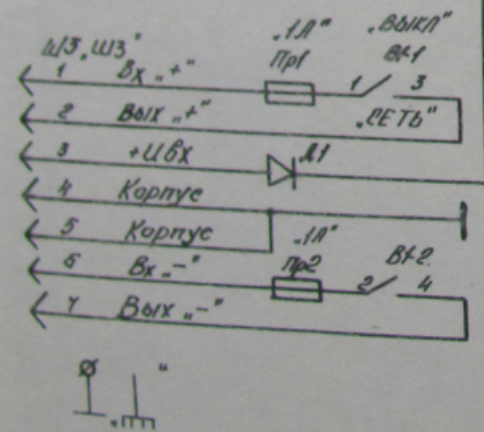 „1А" „ВЫКЛ"
Ш3 „Ш3" Пр1 В1-1
1 Вх „+" 1 3
2 Вых „+" „СЕТЬ"
3 +Uвх Д1
4 Корпус
5 Корпус „1А"
6 Вх „-" Пр2 В1-2
2 4
7 Вых „-"